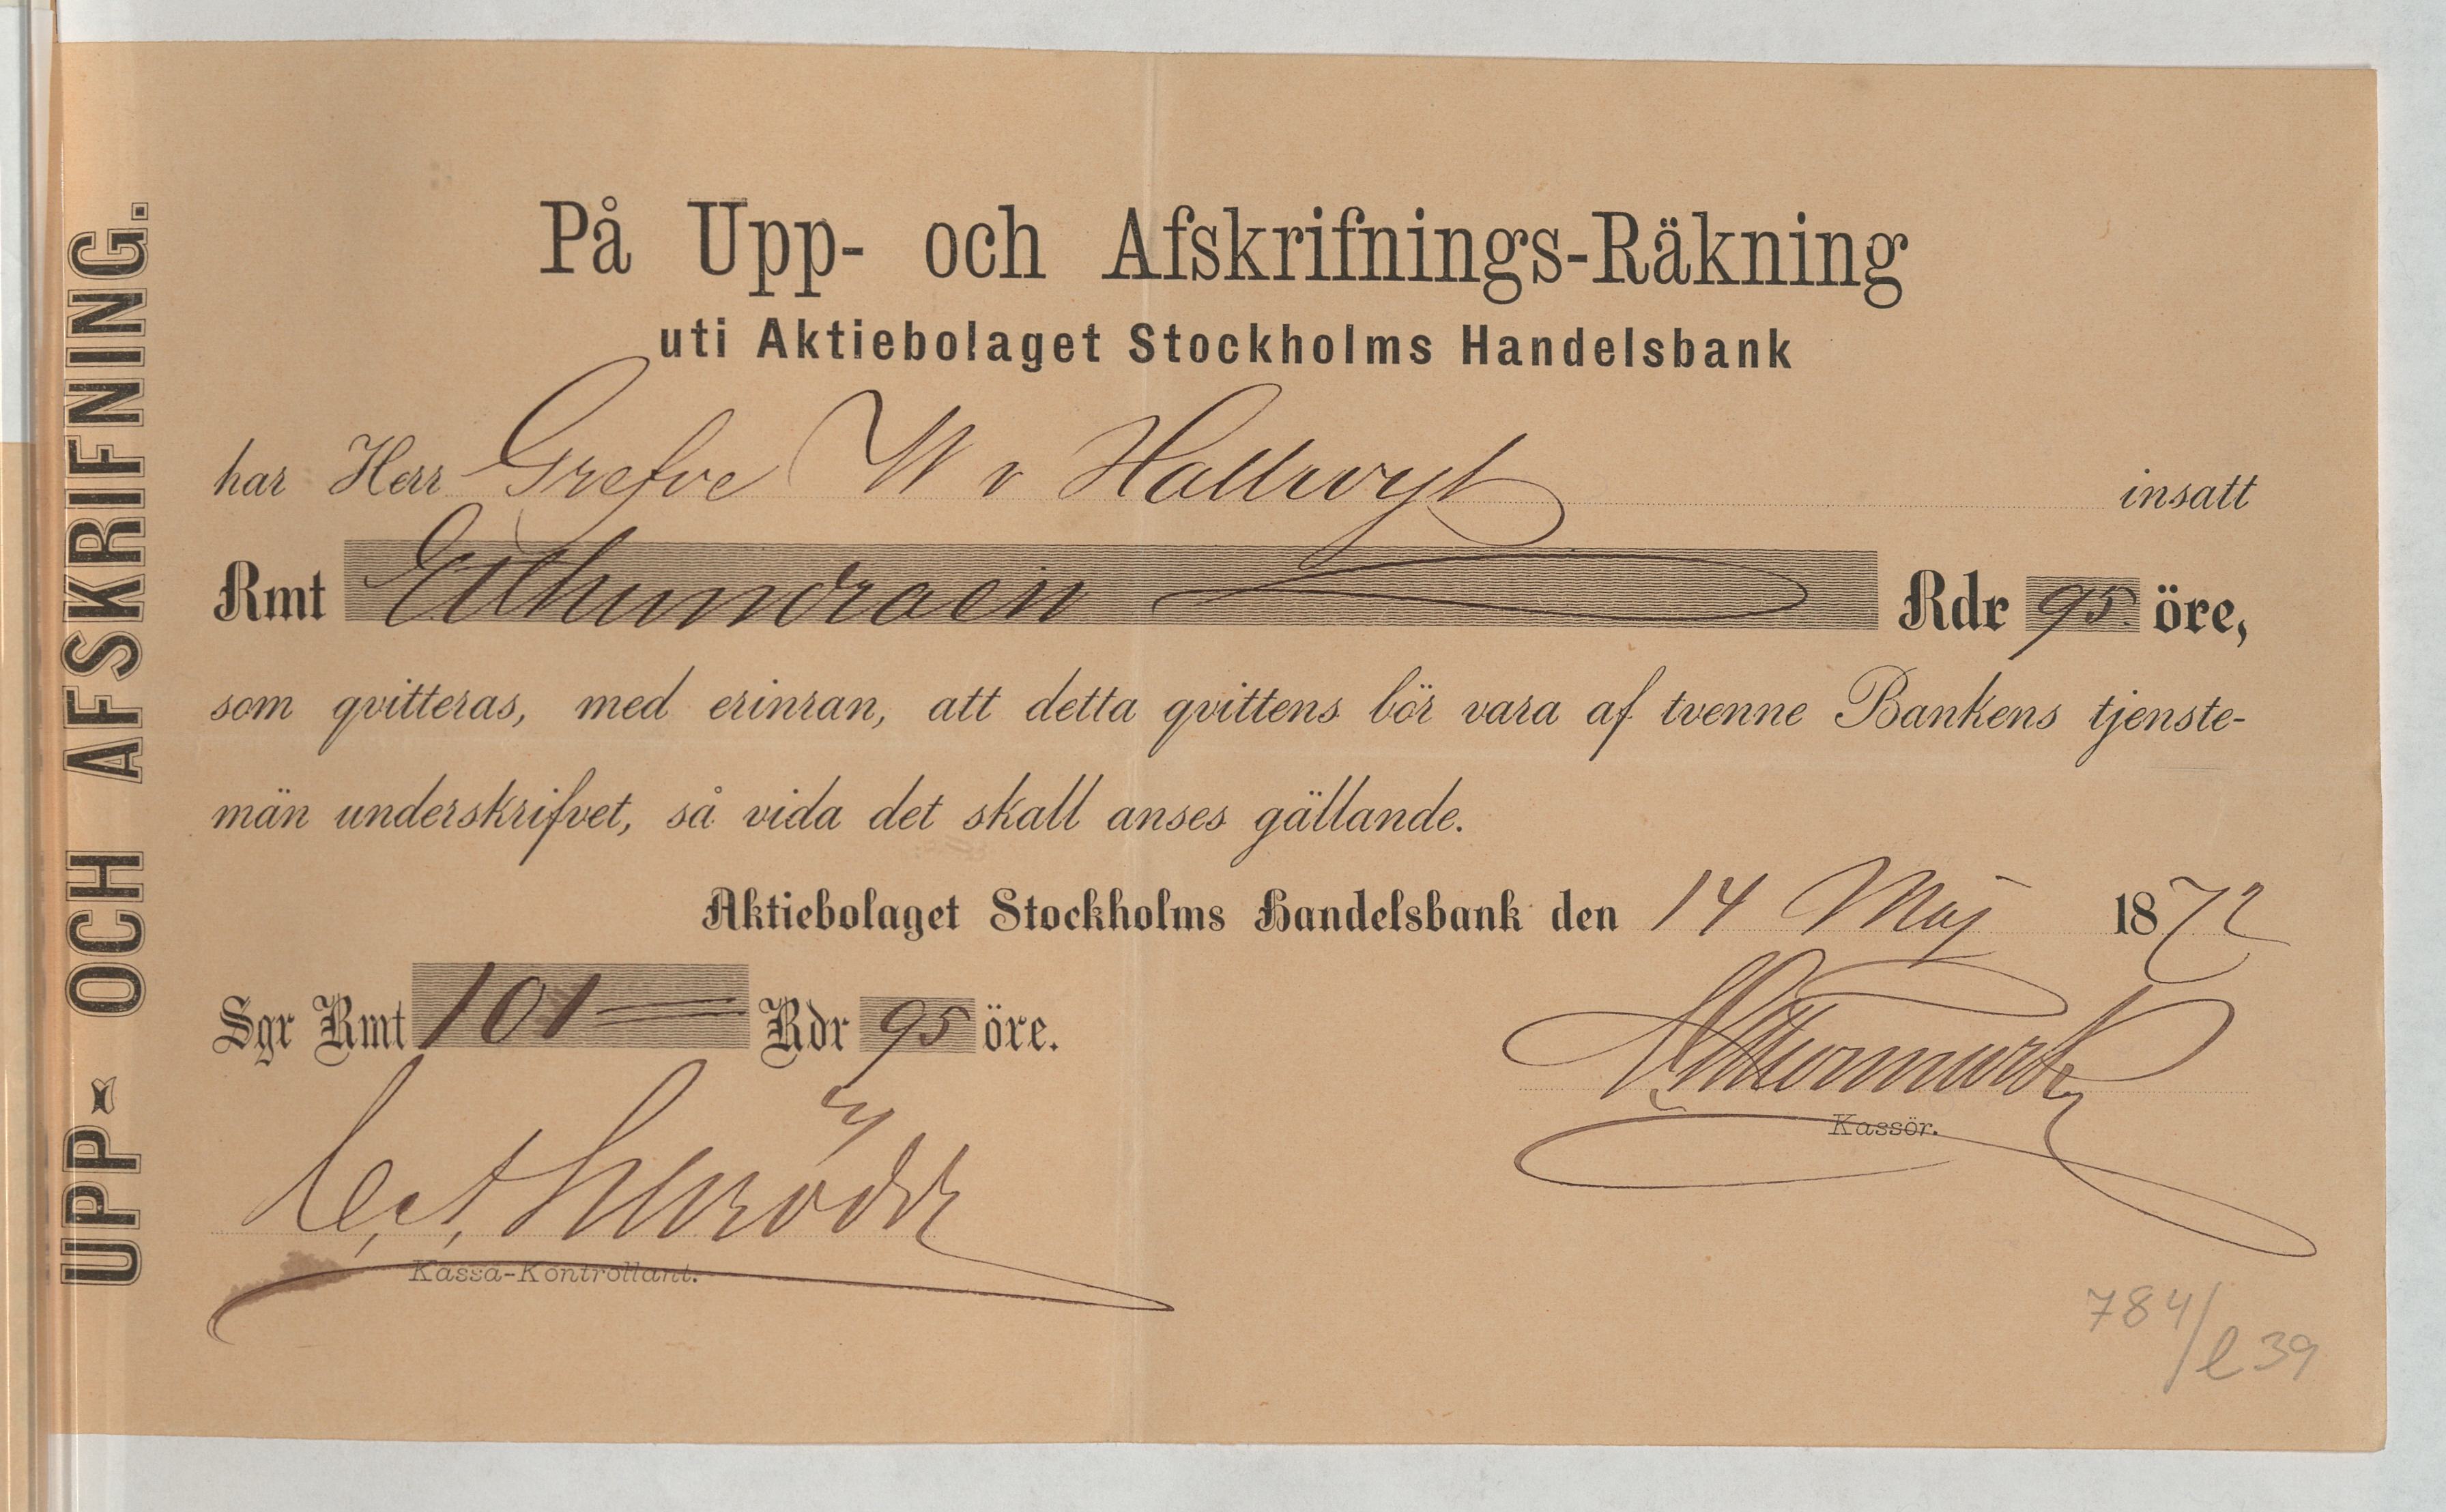 UPP- OCH AFSKRIFNING.
På Upp- och Afskrifnings-Räkning
uti Aktiebolaget Stockholms Handelsbank
har Herr Grefve W v Hallwyl insatt
Rmt Etthundraen Rdr 95 öre,
som qvitteras, med erinran, att detta qvittens bör vara af tvenne Bankens tjenste-
män underskrifvet, så vida det skall anses gällande.
Aktiebolaget Stockholms Handelsbank den 14 Maj 1872
Sgr Rmt 101 Rdr 95 öre.
Kassör.
Kassa-Kontrollant.
784/l 39